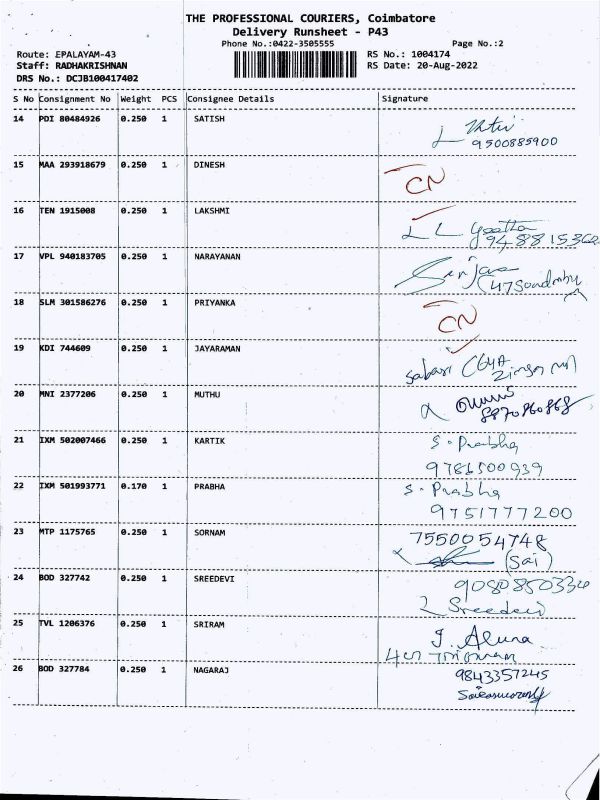 THE PROFESSIONAL COURIERS, Coimbatore
Delivery Runsheet - P43
Phone No.:0422-3505555 Page No.:2
Route: EPALAYAM-43 RS No.: 1004174
Staff: RADHAKRISHNAN RS Date: 20-Aug-2022
DRS No.: DCJB100417402
S No Consignment No Weight PCS Consignee Details Signature
14 PDI 80484926 0.250 1 SATISH
9500885900
15 MAA 293918679 0.250 1 DINESH CN
16 TEN 1915008 0.250 1 LAKSHMI
L L Geetha
9488815360
17 VPL 940183705 0.250 1 NARAYANAN
18 SLM 301586276 0.250 1 PRIYANKA CN
19 KDI 744609 0.250 1 JAYARAMAN
Sabari
20 MNI 2377206 0.250 1 MUTHU
8870860868
21 IXM 502007466 0.250 1 KARTIK S. Prabha
9786500939
22 IXM 501993771 0.170 1 PRABHA S. Prabha
9751777200
23 MTP 1175765 0.250 1 SORNAM 7550054748
(Sai)
24 BOD 327742 0.250 1 SREEDEVI 9080850334
Sreedevi
25 TVL 1206376 0.250 1 SRIRAM J. Aluna
26 BOD 327784 0.250 1 NAGARAJ 9843357245